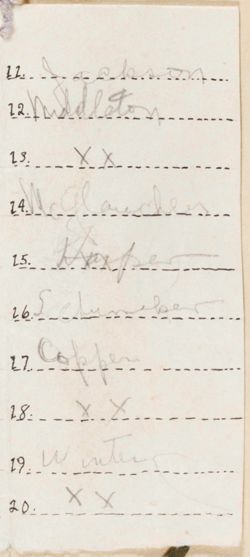 11. Jackson
12. Middleton
13. X X
14.
15. Harper
16.
17. Copper
18. X X
19. Winter
20. X X